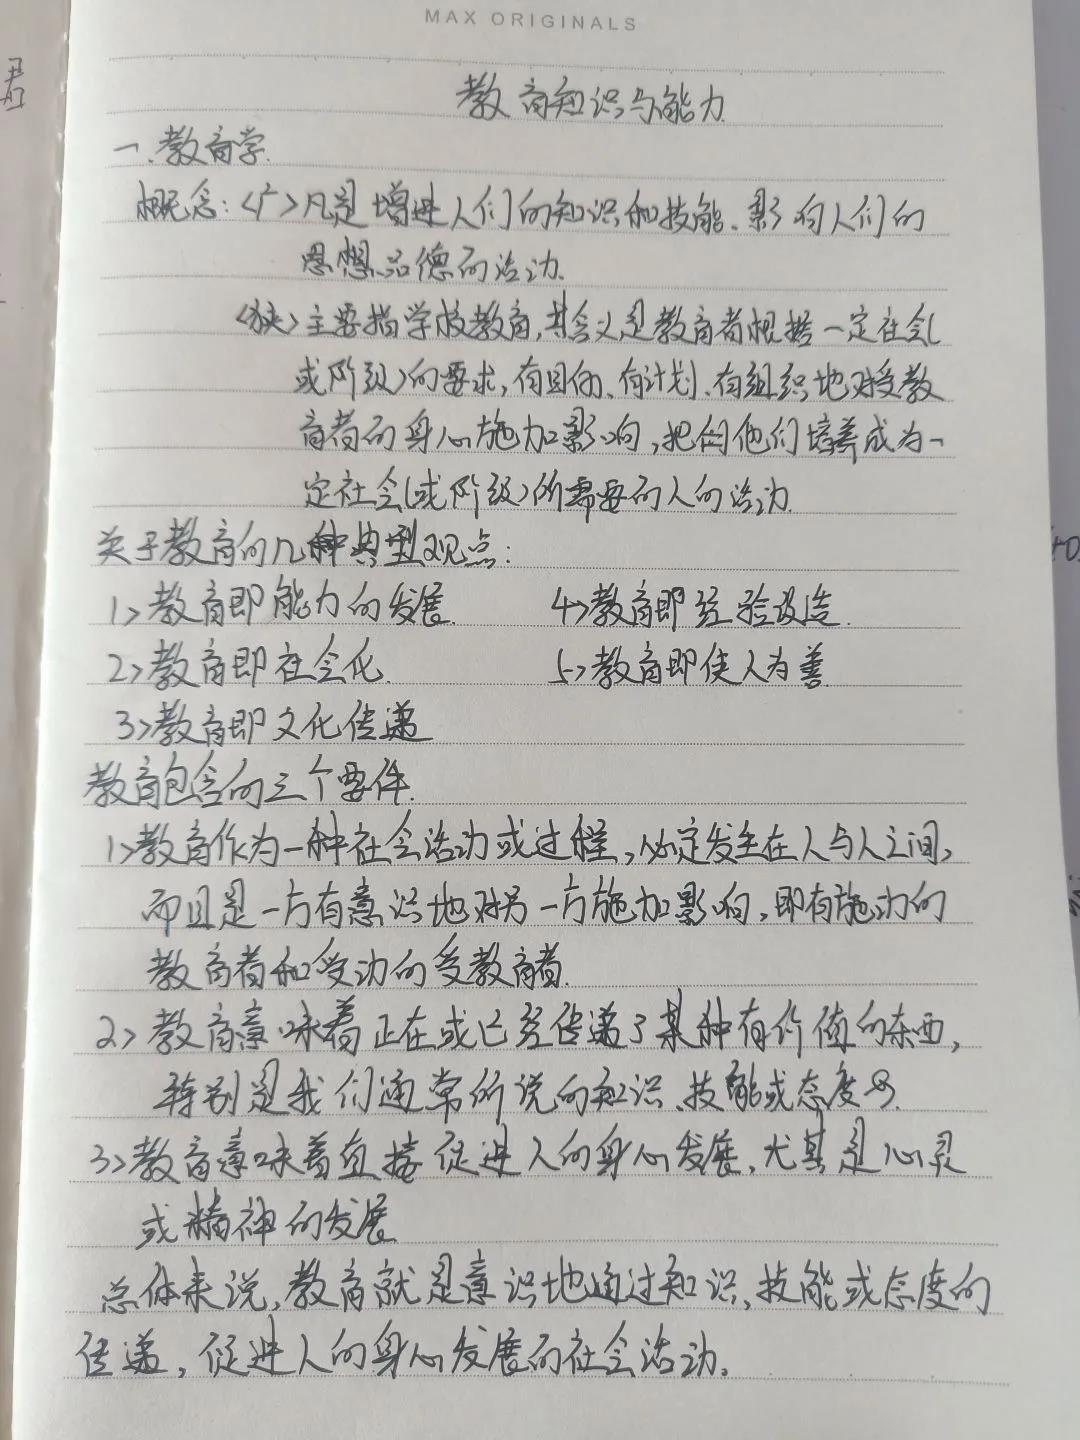 MAX ORIGINALS
教育知识与能力
一、教育学.
概念:<广>凡是增进人们的知识和技能、影响人们的
思想品德的活动.
<狭>主要指学校教育,其含义是教育者根据一定社会(
或阶级)的要求,有目的、有计划、有组织地对受教
育者的身心施加影响,把他们培养成为一
定社会(或阶级)所需要的人的活动.
关于教育的几种典型观点:
1>教育即能力的发展. 4>教育即经验改造.
2>教育即社会化. 5>教育即使人为善.
3>教育即文化传递
教育包含的三个要件.
1>教育作为一种社会活动或过程,必定发生在人与人之间,
而且是一方有意识地对另一方施加影响,即有施动的
教育者和受动的受教育者.
2>教育意味着正在或已经传递了某种有价值的东西,
特别是我们通常所说的知识、技能或态度
3>教育意味着直接促进人的身心发展,尤其是心灵
或精神的发展
总体来说,教育就是意识地通过知识、技能或态度的
传递,促进人的身心发展的社会活动.